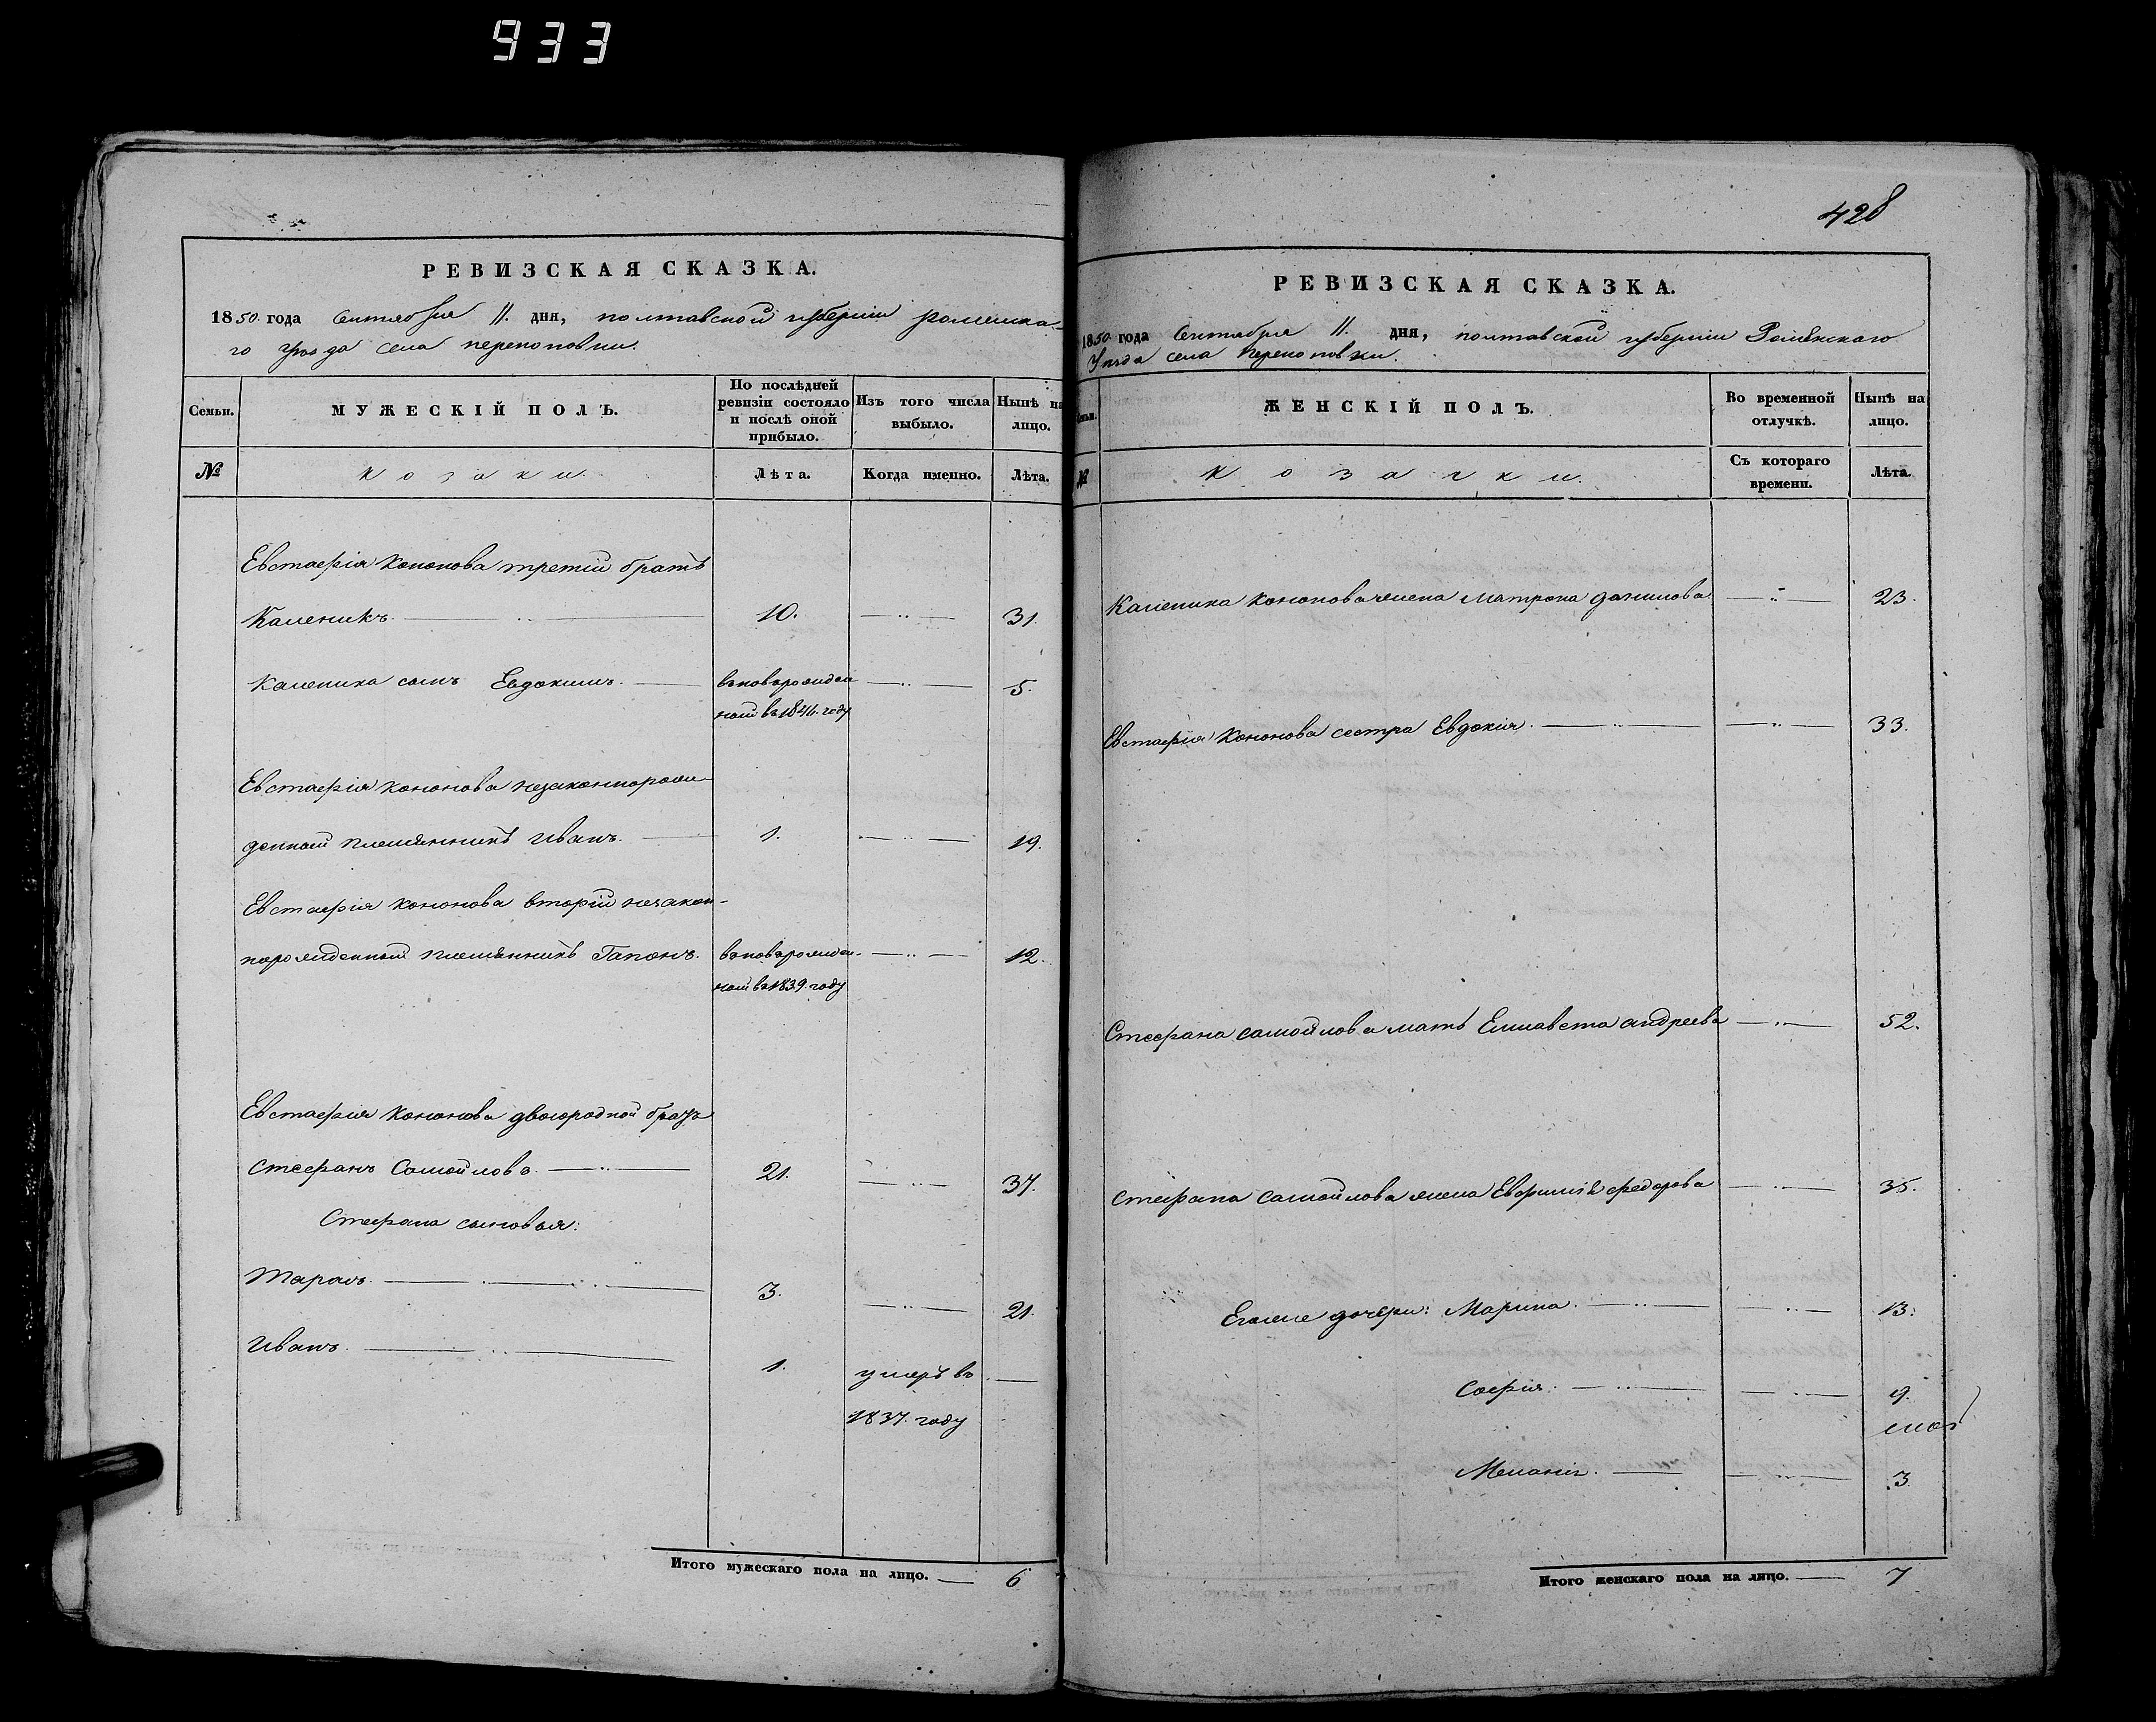 933
РЕВИЗСКАЯ СКАЗКА.
1850 года Сентября 11. дня, полтавской губерніи роменска-
го уѣзда села перекоповки.
Семьи.
МУЖЕСКІЙ ПОЛЪ.
По послѣдней ревизіи состояло и послѣ оной прибыло.
Изъ того числа выбыло.
Нынѣ на лицо.
№
козаки.
Лѣта.
Когда именно.
Лѣта.
Евстафія Кононова третій братъ
Каленикъ. 10. 31.
Каленика сынъ Евдокимъ. вновьрожден 5.
ной въ 184 . году
Евстафія Кононова незаконнорож-
денной племянникъ Иванъ. 1. 19.
Евстафія Кононова вторій незакон-
норожденной племянникъ Гапонъ. вновьрожден- 12.
ной въ 1839. году
Евстафія Кононова двоюродной братъ
Стефанъ Самойловъ. 21. 37.
Стефана сыновья:
Тарасъ. 3. 21.
Иванъ. 1. умеръ въ
1837. году
Итого мужескаго пола на лицо. 6
428
РЕВИЗСКАЯ СКАЗКА.
1850 года Сентября 11. дня, полтавской губерніи Роменскаго
Уѣзда села Перекоповки.
Семьи.
ЖЕНСКІЙ ПОЛЪ.
Во временной отлучкѣ.
Нынѣ на лицо.
№
козачки.
Съ котораго времени.
Лѣта.
Каленика Кононова жена Матрона Данилова 23.
Евстафія Кононова сестра Евдокія. 33.
Стефана Самойлова мать Елисавета андреева 52.
Стефана Самойлова жена Евфимія федорова 35.
Егоже дочери: Марина. 13.
Софія. 9.
Меланія. 3.
Итого женскаго пола на лицо. 7